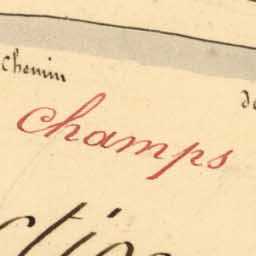 chemin
de
champs
ction